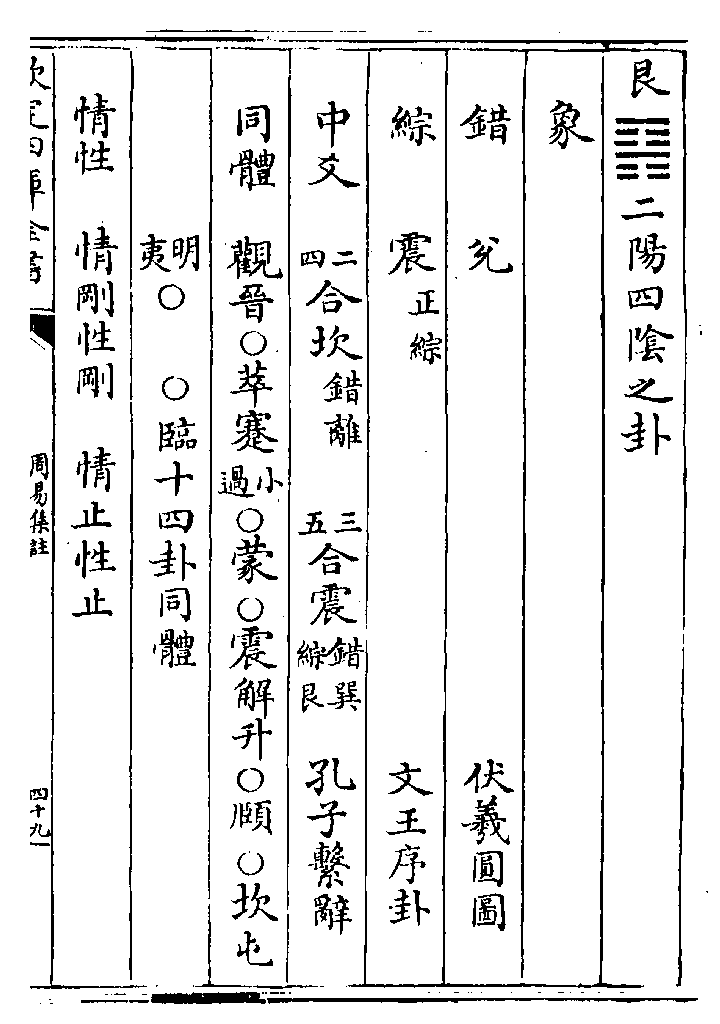 艮䷳二陽四陰之卦
象
錯 兌 伏羲圓圖
綜 震正綜 文王序卦
中爻 二四合坎錯離 三五合震錯巽綜艮 孔子繫辭
同體 觀晉○萃蹇小過○蒙○震解升○頤○坎屯
明夷○ ○臨十四卦同體
情性 情剛性剛 情止性止
欽定四庫全書
周易集註
四十九